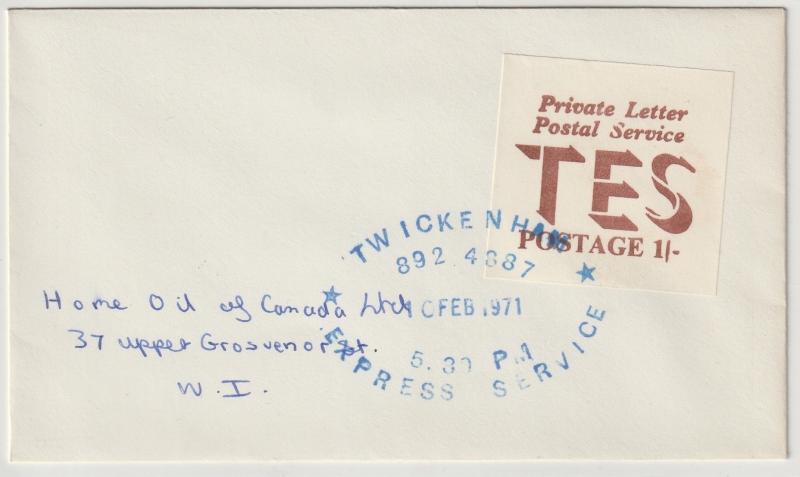 Private Letter
Postal Service
TES
POSTAGE 1/-
TWICKENHAM
892 4887
10 FEB 1971
5.30 PM
EXPRESS SERVICE
Home Oil of Canada Ltd
37 upper Grosvenor st.
W.I.